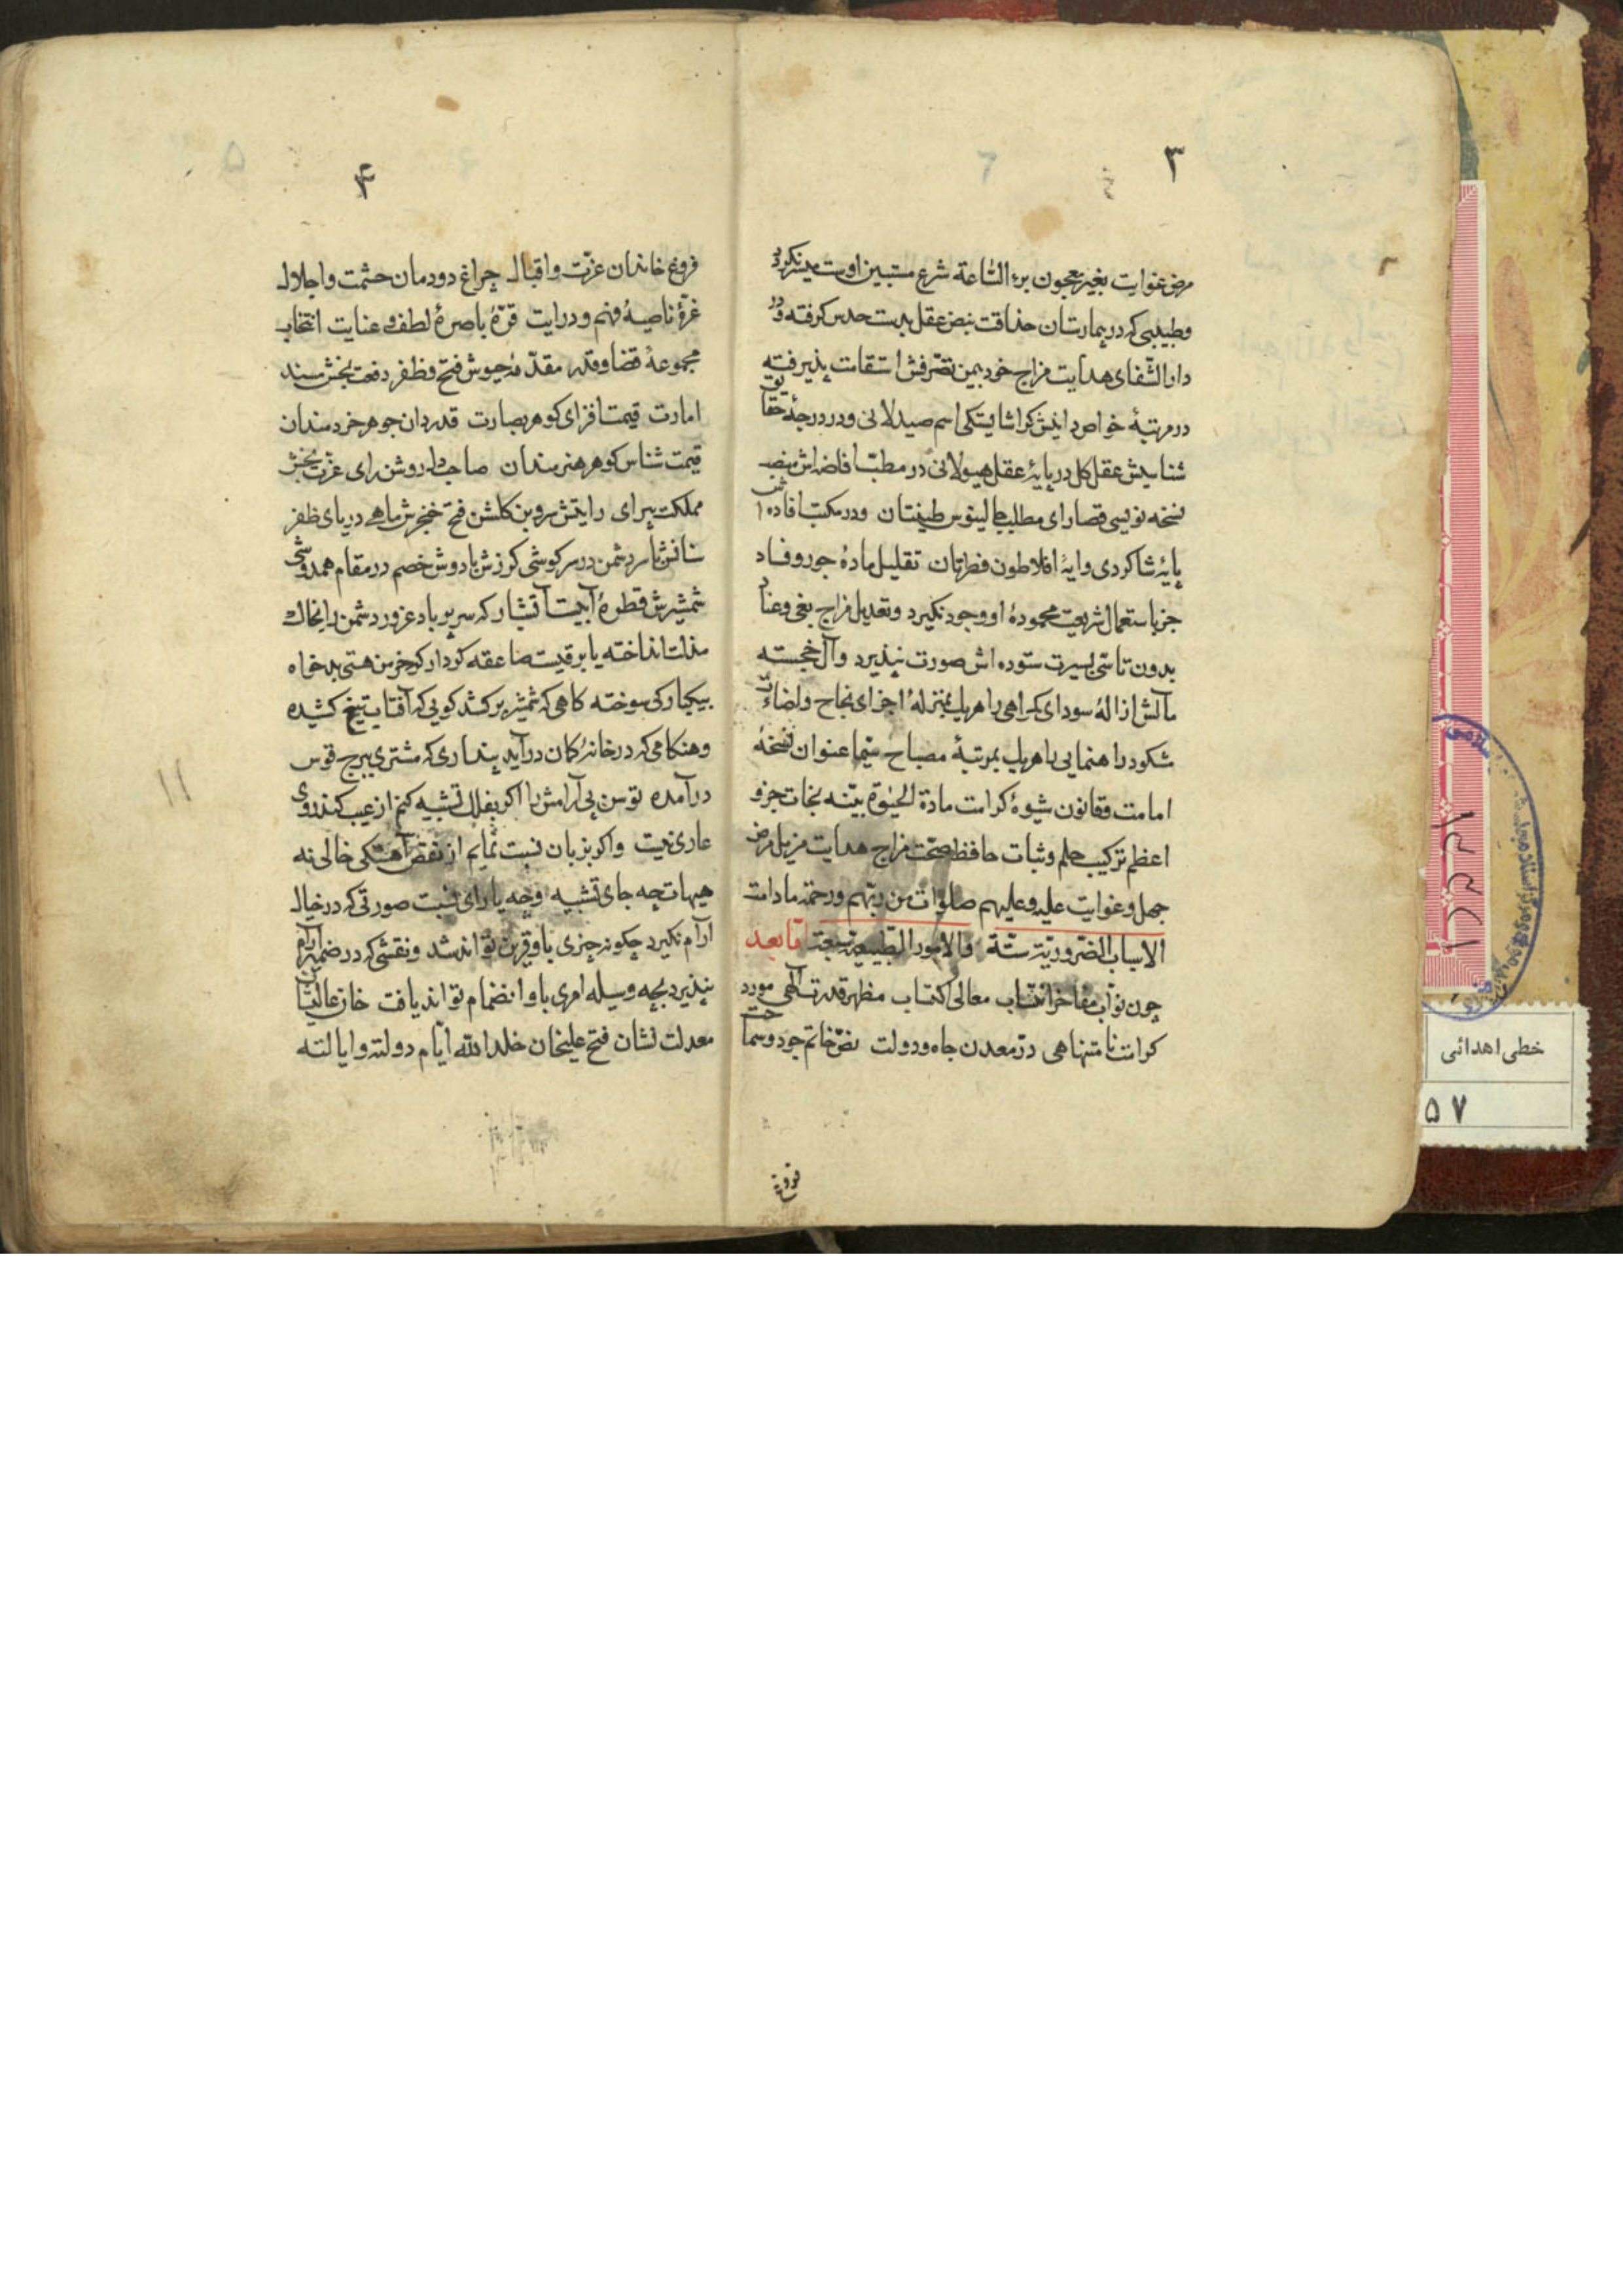 ۳
مرض غوایت بغیر معجون برء الساعة شرع مستبین اوست میسر نکردد
وطبیبی که در بیمارستان حذاقت نبض عقل بدست حدس کرفته و در
دار الشفای هدایت مزاج خود بیمن تصرفش استقامت پذیرفته
در مرتبۀ خواص دانیش کرا شایستکی اسم صیدلانی ودر درجۀ حقایق
شناسیش عقل کل در پایۀ عقل هیولانی در مطب افاضه اش منصب
نسخه نویسی قصارای مطلب جالینوس طینتان ودر مکتب افاده اش
پایۀ شاکردی وایۀ افلاطون فطرتان تقلیل مادۀ جور وفساد
جز باستعمال شریعت محمودۀ او وجود نکیرد وتعدیل مزاج بغی وعناد
بدون تاسی بسیرت ستوده اش صورت نپذیرد وآل خجسته
مآلش ازالۀ سودای کمراهی را هر یک بمنزلۀ اجزای نجاح واضاءت
شکوۀ راهنمایی را هر یک بمرتبۀ مصباح سیما عنوان نسخۀ
امامت وقانون شیوۀ کرامت مادة الحیوة بیّنه نجات جزو
اعظم ترکیب حلم وثبات حافظ صحت مزاج هدایت مزیل مرض
جهل وغوایت علیه وعلیهم صلوات من ربهم ورحمة مادامت
الاسباب الضروریة ستة والامور الطبیعیة سبعة اما بعد
چون نواب مفاخر انتساب معالی اکتساب مظهر قدرت الهی مورد
کرامت نامتناهی در معدن جاه ودولت فص خاتم جود وسماحت
فروغ
۴
فروغ خاندان عزت واقبال چراغ دودمان حشمت واجلال
غرۀ ناصیۀ فهم ودرایت قرۀ باصرۀ لطف وعنایت انتخاب
مجموعۀ قضا وقدر مقدمۀ جیوش فتح وظفر رفعت بخش مسند
امارت قیمت افزای کوهر بصارت قدردان جوهر خردمندان
قیمت شناس کوهر هنرمندان صاحبدل روشن رای عزت بخش
مملکت پیرای رایتش سروبن کلشن فتح خنجرش ماهی دریای ظفر
سنانش با سر دشمن در سرکوشی کرزش با دوش خصم در مقام همدوشی
شمشیرش قطرۀ آبیست آتشبار که سر پر باد غرور دشمن را بخاک
مذلت انداخته یا برقیست صاعقه کردار که خرمن هستی بدخواه
بیکبارکی سوخته کاهی که شمشیر برکشد کویی که آفتاب تیغ کشیده
وهنکامی که در خانۀ کمان درآید پنداری که مشتری ببرج قوس
درآمده توسن بی آرامش را اکر بفلک تشبیه کنم از عیب کندروی
عاری نیست واکر بزبان نسبت نمایم از نقص آهستکی خالی نه
هیهات چه جای تشبیه وچه یارای نسبت صورتی که در خیال
آرام نکیرد چکونه چیزی باو قرین تواند شد ونقشی که در ضمیر ارتسام
نپذیرد بچه وسیله امری باو انضمام تواند یافت خان عالیشان
معدلت نشان فتح علیخان خلد الله ایام دولته وایالته
۱۱
خطی اهدائی
۵۷